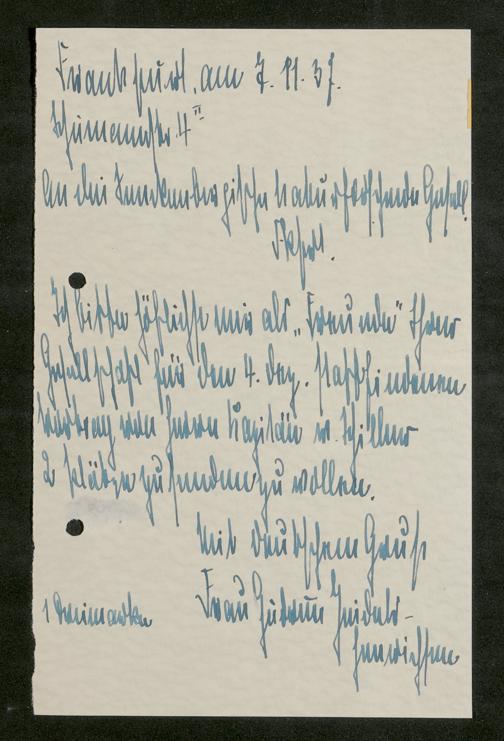 Frankfurt, am 7. 11. 37.
Schumannstr. 4 II
An die Senckenbergische Naturforschende Gesell.
Ffm.
Ich bitte höflichst mir als „Freunde“ Ihrer
Gesellschaft für den 4. Dez. stattfindenen
Vortrag von Herrn Kapitän v. Schiller
2 Plätze zusenden zu wollen.
Mit deutschem Gruß
Frau Gudrun
1 Freimarke